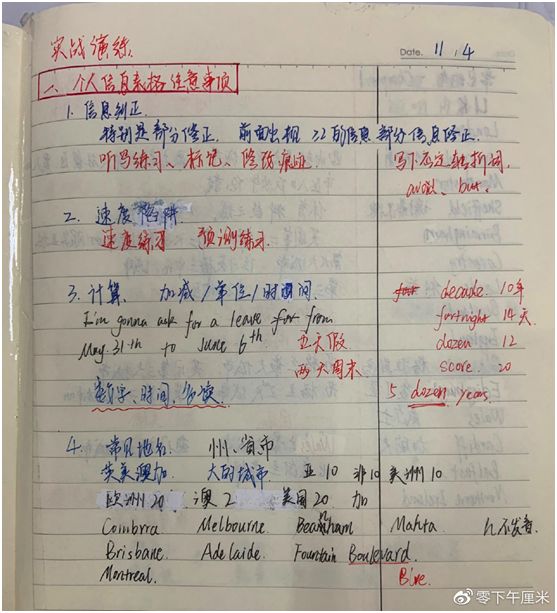 实战演练
Date. 11.4
一、个人信息表格注意事项
1. 信息纠正.
特别是部分修正. 前面出现过的信息 部分信息修正.
听写练习、标记、
写下否定转折词.
avoid, but.
2. 速度陷阱
速度练习 预测练习.
3. 计算. 加减/单位/时间
decade. 10年
I'm gonna ask for a leave for from
fortnight 14天
May. 31th to June 6th 五天假
dozen 12
两天周末
score. 20
数字、时间、多读.
5 dozen years
4. 常见地名 州、省市
英美澳加. 大的城市. 亚10 非10 美洲10
欧洲20 澳2 美国20 加
Coimbra Melbourne. Manuta h不发音.
Brisbane. Adelaide. Fountain Boulevard.
Montreal. Blve.
零下午厘米